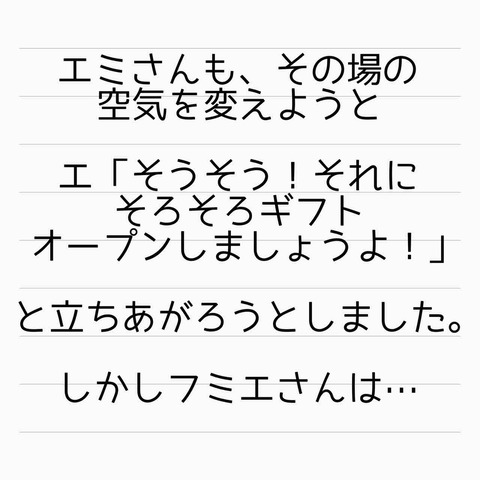 エミさんも、その場の
空気を変えようと
エ「そうそう！それに
そろそろギフト
オープンしましょうよ！」
と立ちあがろうとしました。
しかしフミエさんは…